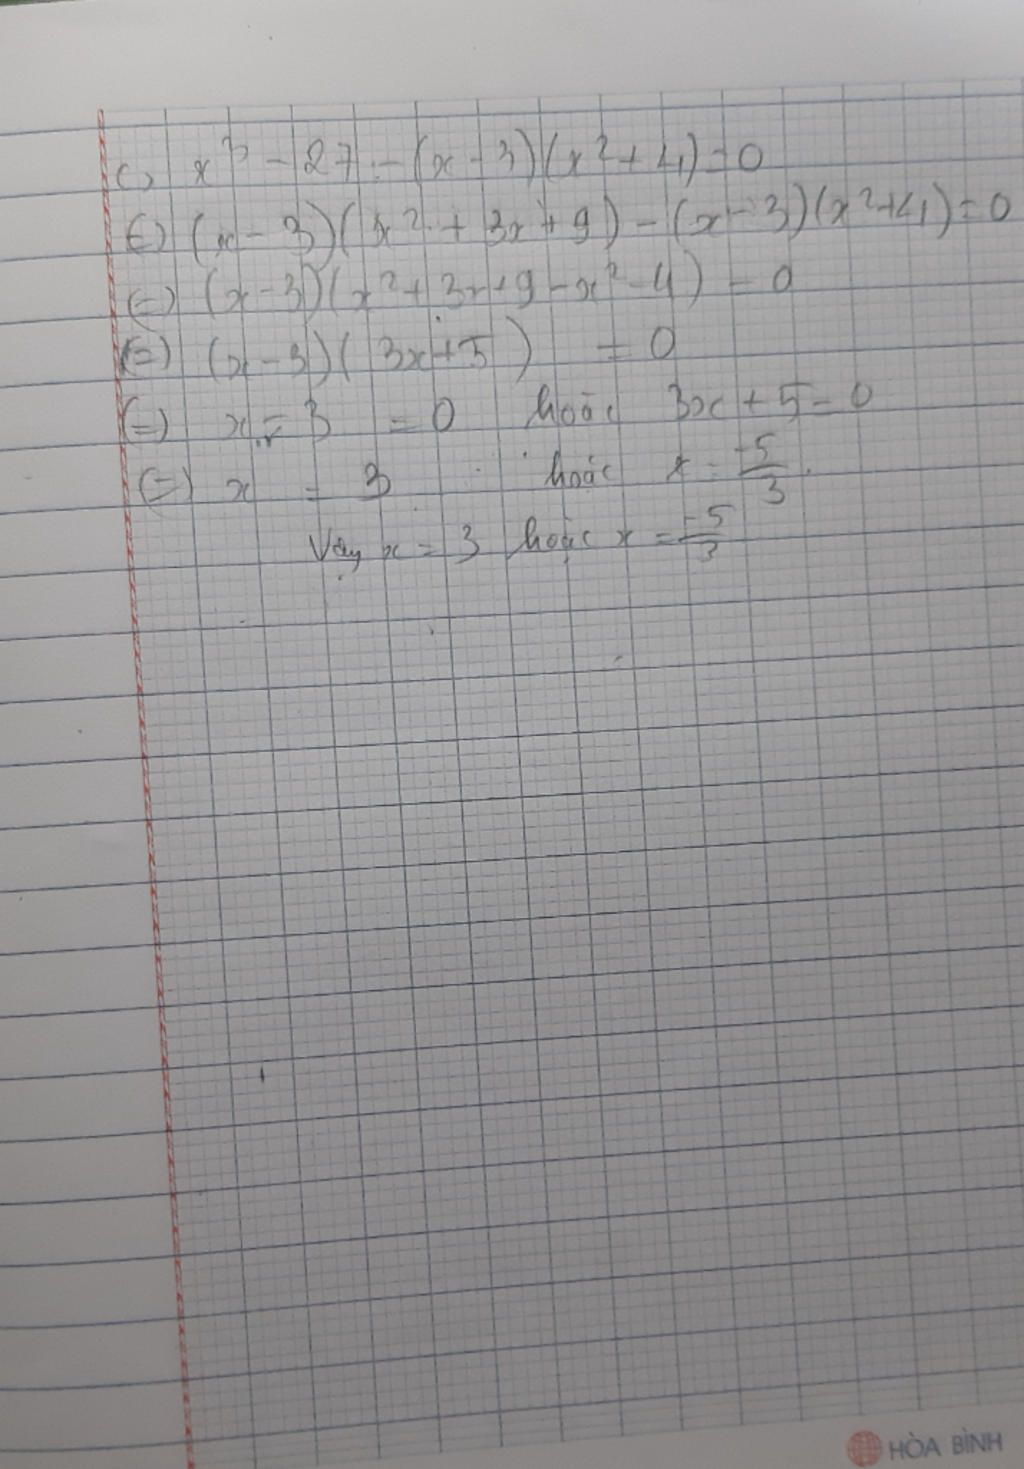 c) x³ - 27 - (x - 3)(x² + 4) = 0
(=) (x - 3)(x² + 3x + 9) - (x - 3)(x² + 4) = 0
(=) (x - 3)(x² + 3x + 9 - x² - 4) = 0
(=) (x - 3)(3x + 5) = 0
(=) x - 3 = 0 hoặc 3x + 5 = 0
(=) x = 3 hoặc x = -5/3
Vậy x = 3 hoặc x = -5/3
HÒA BÌNH